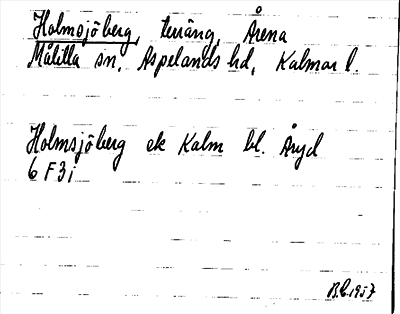 Holmsjöberg, terräng, Årena
Målilla sn, Aspelands hd, Kalmar l
Holmsjöberg ek Kalm bl. Åryd
6 F 3 i
B.L. 1957